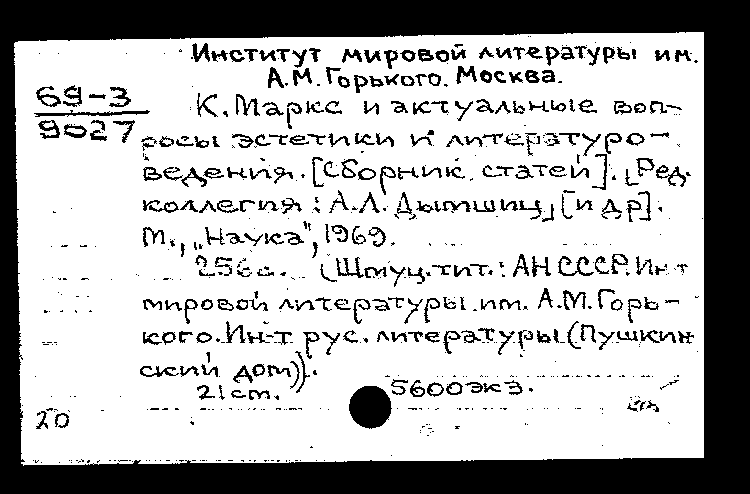 Институт мировой литературы им.
А.М. Горького. Москва.
69-3
9027
К. Маркс и актуальные воп-
росы эстетики и литературо-
ведения. [Сборник статей]. [Ред.
коллегия: А.Л. Дымшиц, [и др].
М., „Наука", 1969.
256 с. (Шмуц.тит.: АН СССР. Ин-т
мировой литературы им. А.М. Горь-
кого. Ин-т рус. литературы (Пушкин
ский дом)).
21 см. 5600 экз.
20